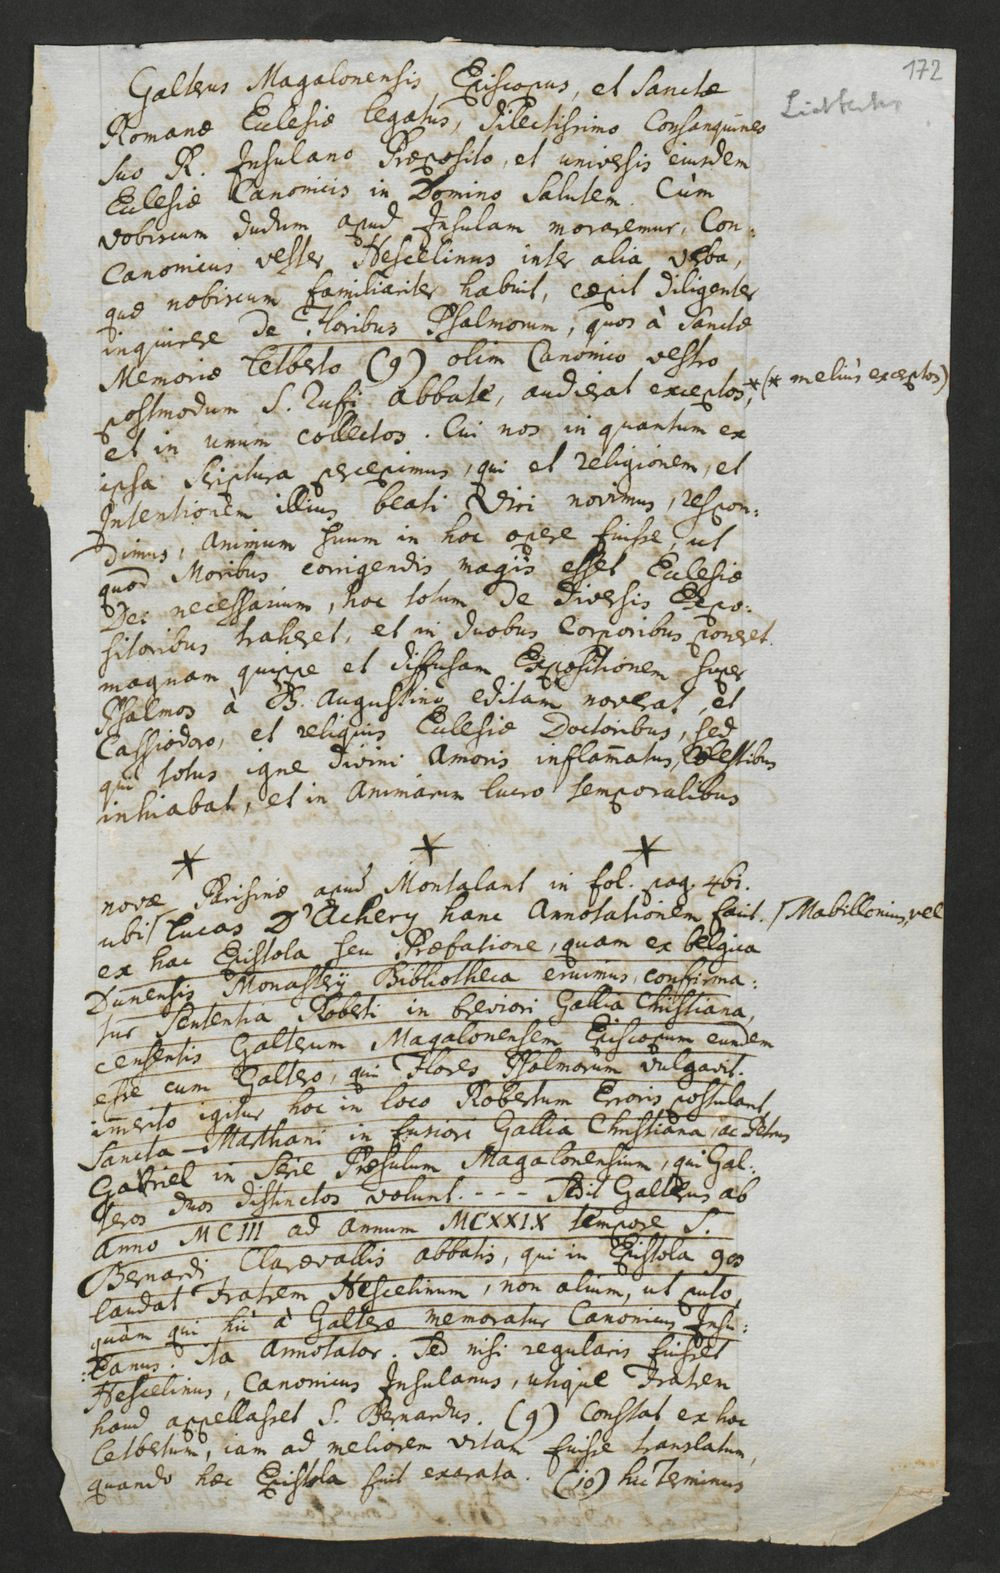 172
Galterus Magalonensis Episcopus, et Sanctæ
Romanæ Ecclesiæ legatus, dilectissimo Consanguineo
suo R. Insulano Præposito, et universis eiusdem
Ecclesiæ Canonicis in Domino Salutem. Cùm
vobiscum dudum apud Insulam moraremur, Con-
canonicus vester Hescelinus inter alia verba,
quæ nobiscum familiariter habuit, cæpit diligenter
inquirere de Floribus Psalmorum, quos à Sanctæ
Memoriæ Letberto (9) olim Canonico vestro
postmodum S. Rufi abbate, audierat exceptos,* (* meliùs excerptos)
et in unum collectos. Cui nos in quantum ex
ipsa Scriptura percepimus, qui et religionem, et
Intentionem illius beati Viri novimus, respon-
dimus, animum suum in hoc opere fuisse, ut
quod Moribus corrigendis magis esset Ecclesiæ
Dei necessarium, hoc totum de diversis Expo-
sitoribus traheret, et in duobus Corporibus poneret.
magnam quippe et diffusam Expositionem super
Psalmos à B. Augustino editam noverat, et
Cassiodoro, et reliquis Ecclesiæ Doctoribus, sed
qui totus igne divini Amoris inflam̄atus, Cælestibus
inhiabat, et in Animarum lucro temporalibus
* * *
novæ Parisinæ apud Montalant in fol. pag. 461.
ubi / Lucas D'Achery hanc Annotationem facit. / Mabillonius, vel
ex hac Epistola seu Præfatione, quam ex belgica
Dunensis Monasterÿ Bibliotheca eruimus, confirma-
tur Sententia Roberti in breviori Gallia Christiana,
censentis Galterum Magalonensem Episcopum eundem
esse cum Galtero, qui Flores Psalmorum vulgavit.
im̄erito igitur hoc in loco Robertum Erroris postulant
Sancta-Marthani in fusiori Gallia Christiana, ac Petrus
Gabriel in Serie Præsulum Magalonensium, qui Gal-
teros duos distinctos volunt. - - - - Sedit Galterus ab
anno MCIII ad annum MCXXIX tempore S.
Bernardi Claravallis abbatis, qui in Epistola
laudat Fratrem Hescelinum, non alium, ut puto,
quàm qui hìc à Galtero memoratur Canonicus Insu-
lanus. ita Annotator. Sed nisi regularis fuisset
Hescelinus, Canonicus Insulanus, utique Fratrem
haud appellasset S. Bernardus. (9) Constat ex hoc
Letbertum, iam ad meliorem vitam fuisse translatum,
quando hæc Epistola fuit exarata. (10) hic Terminus